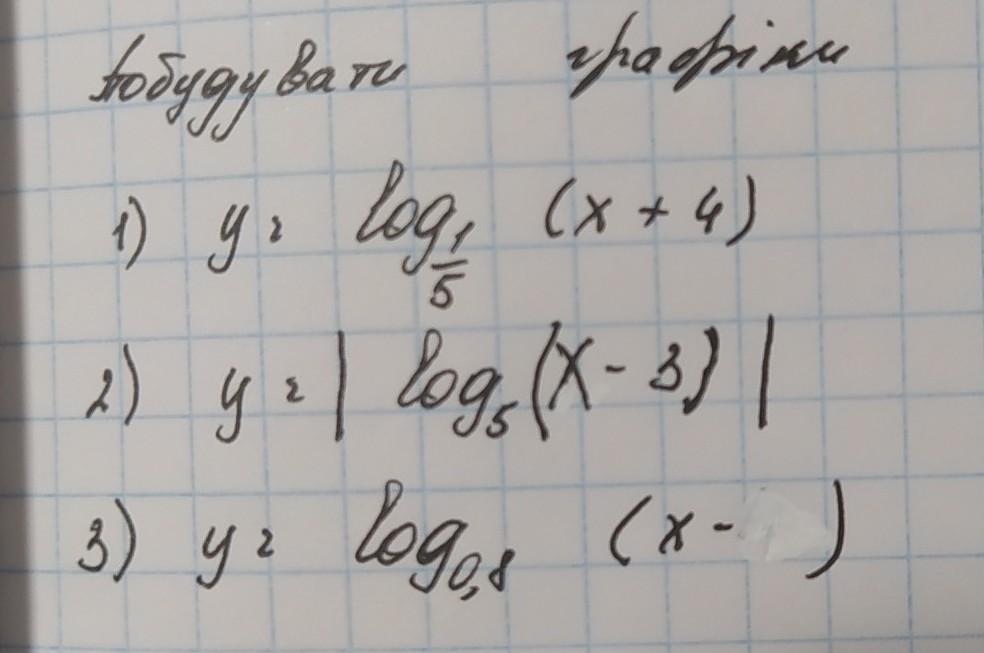 Побудувати графіки
1) y = log_{1/5} (x + 4)
2) y = | log_5 (x - 3) |
3) y = log_{0,8} (x - )